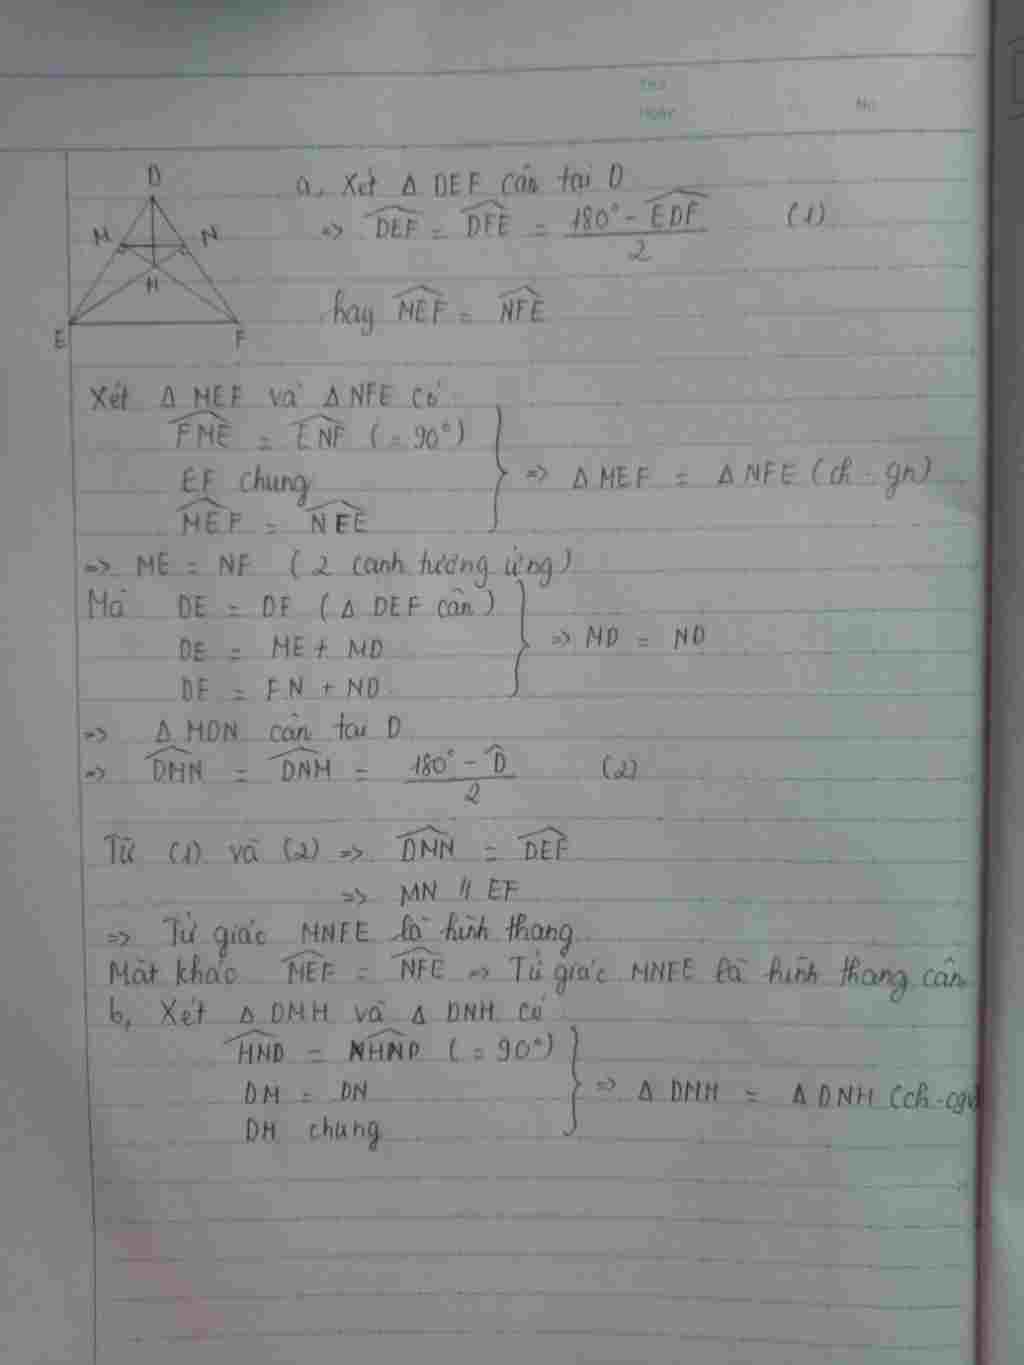 D
M
N
H
E
F
a, Xét Δ DEF cân tại D
=> DEF = DFE = 180° - EDF / 2 (1)
hay MEF = NFE
Xét Δ MEF và Δ NFE có
FME = ENF (= 90°)
EF chung
MEF = NFE
=> Δ MEF = Δ NFE (ch - gn)
=> ME = NF (2 cạnh tương ứng)
Mà DE = DF (Δ DEF cân)
DE = ME + MD
DF = FN + ND
=> MD = ND
=> Δ MDN cân tại D
=> DMN = DNM = 180° - D / 2 (2)
Từ (1) và (2) => DMN = DEF
=> MN // EF
=> Tứ giác MNFE là hình thang
Mặt khác MEF = NFE => Tứ giác MNFE là hình thang cân
b, Xét Δ DMH và Δ DNH có
HND (= 90°)
DM = DN
DH chung
=> Δ DMH = Δ DNH (ch - cgv